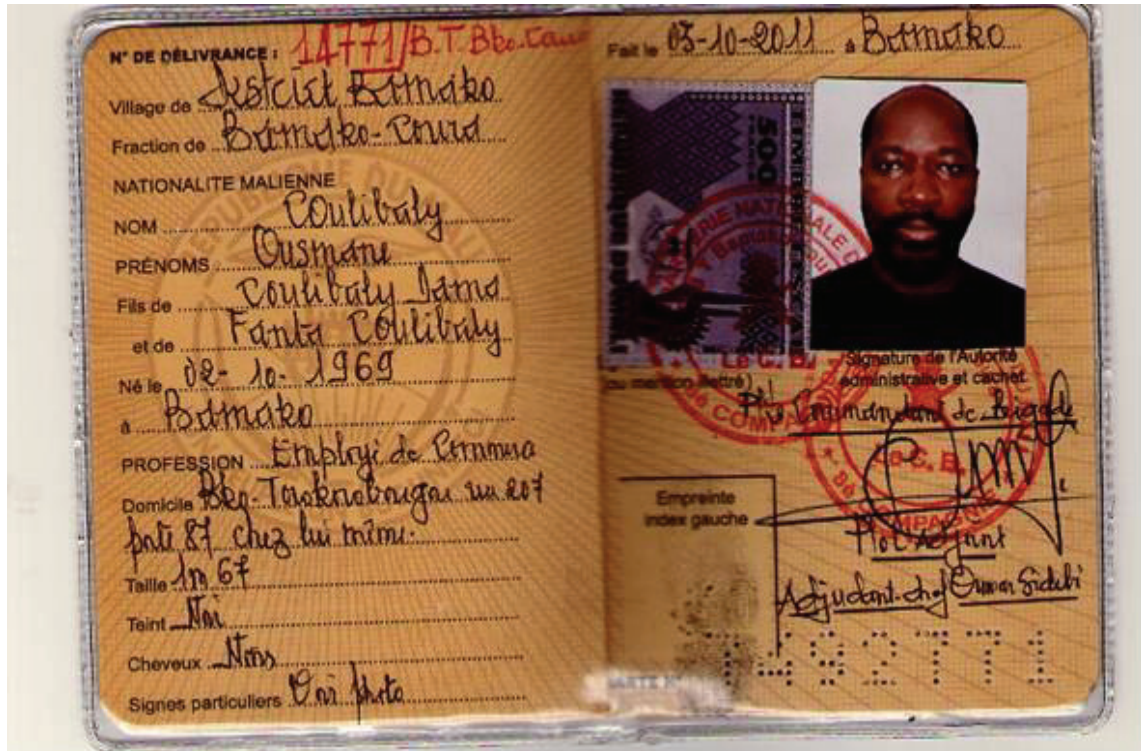 N° DE DÉLIVRANCE : 14771/B.T. Bko-Coura
Village de District Bamako
Fraction de Bamako-Coura
NATIONALITE MALIENNE
NOM Coulibaly
PRÉNOMS Ousmane
Fils de Coulibaly
et de Fanta Coulibaly
Né le 02-10-1969
à Bamako
PROFESSION Employé de Commerce
Domicile Bko-Torokorobougou rue 207
porte 87 chez lui même.
Taille 1m 67
Teint Noir
Cheveux Noirs
Signes particuliers Voir photo
Fait le 05-10-2011 à Bamako
500
Le C. B.
(ou mention illettré)
Signature de l'Autorité
administrative et cachet
Commandant de Brigade
Le C. B.
COMPAGNIE
Empreinte
index gauche
Adjudant-chef Oumar Sidibé
CARTE N°